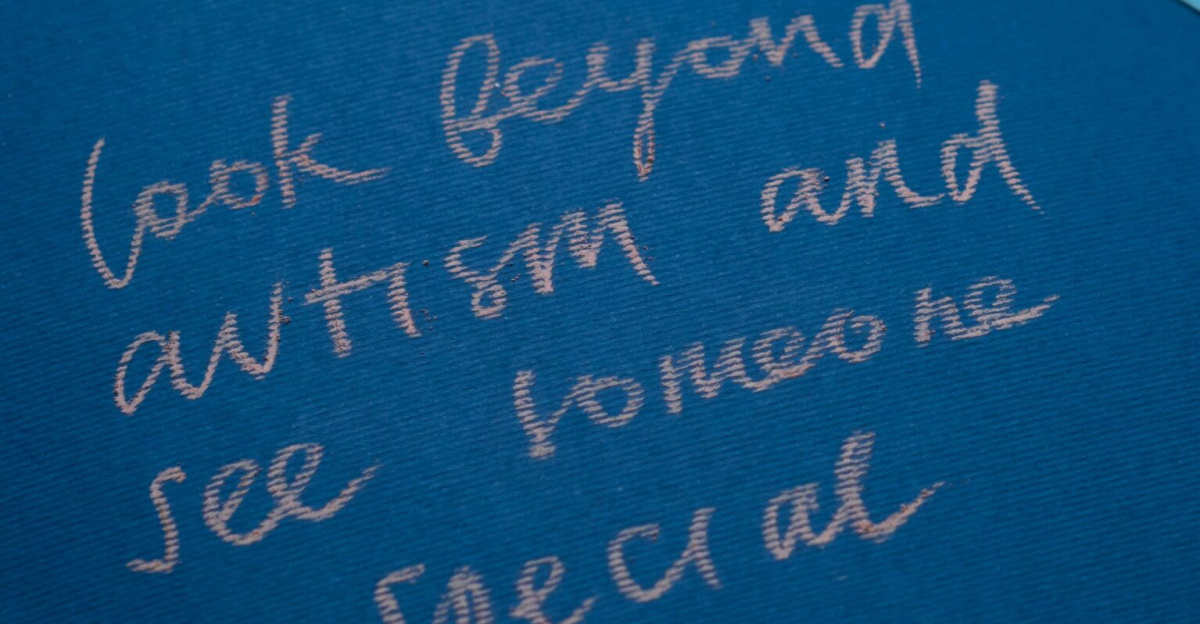 look beyond
autism and
see someone
special